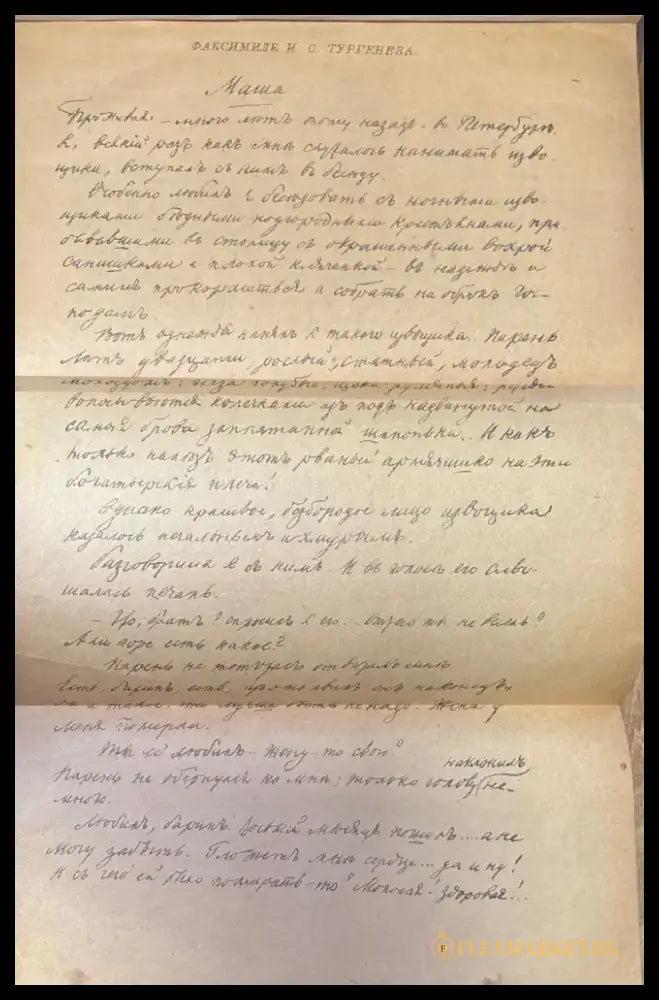 ФАКСИМИЛЕ И С. ТУРГЕНЕВА.
Маша
Проживая – много лѣтъ тому назадъ – въ Петербургѣ
я, всякій разъ какъ мнѣ случалось нанимать изво-
щика, вступалъ съ нимъ въ бесѣду.
Особенно любилъ я бесѣдовать съ ночными изво-
щиками бѣдными подгородными крестьянами, при
бывавшими въ столицу съ окрашенными вохрой
санишками и плохой клячонкой – въ надеждѣ и
самимъ прокормиться и собрать на оброкъ гос-
подамъ.
Вотъ однажды нанялъ я такого извощика. Парень
лѣтъ двадцати, рослый, статный, молодецъ
молодцомъ; глаза голубые, щеки румяныя; русые
волосы вьются колечками изъ подъ надвинутой на
самыя брови заплатанной шапоньки. И какъ
только налѣзъ этотъ рваный армячишко на эти
богатырскія плеча!
Однако красивое, безбородое лицо извощика
казалось печальнымъ и хмурымъ.
Разговорился я съ нимъ. И въ голосѣ его слы-
шалась печаль.
– Что, братъ? спросилъ я его. Отчего ты не веселъ?
Али горе есть какое?
Парень не тотчасъ отвѣчалъ мнѣ.
Есть, баринъ, есть, промолвилъ онъ наконецъ.
Да и такое, что лучше быть не надо. Жена у
меня померла.
Ты её любилъ – жену-то свою?
наклонилъ
Парень не обернулся ко мнѣ; только голову не-
много.
Любилъ, баринъ. Восьмой мѣсяцъ пошолъ... а не
могу забыть. Гложетъ мнѣ сердце... да и ну!
И съ чего ей было помирать-то? Молодая! здоровая!..
FLEAMARKET.BG